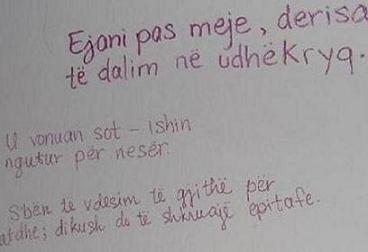 Ejani pas meje, derisa
të dalim në udhëkryq.
U vonuan sot - ishin
ngutur për nesër.
S'bën te vdesim të gjithë për
atdhe; dikush do të shkruajë epitafe.